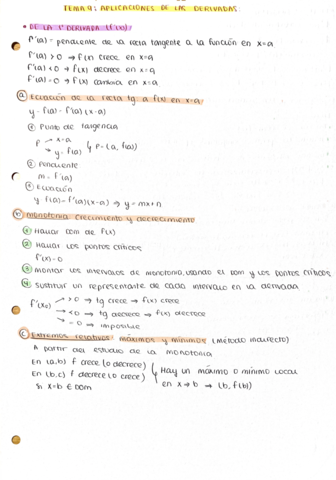 TEMA 9: APLICACIONES DE LAS DERIVADAS
• DE LA 1ª DERIVADA (f'(x))
f'(a) = pendiente de la recta tangente a la función en x=a
f'(a) > 0 → f(x) crece en x=a
f'(a) < 0 → f(x) decrece en x=a
f'(a) = 0 → f(x) cambia en x=a
a) Ecuación de la recta tg. a f(x) en x=a
y - f(a) = f'(a) (x-a)
① Punto de tangencia
P → x=a
→ y=f(a) P=(a, f(a))
② Pendiente
m = f'(a)
Ecuación
y f(a) = f'(a)(x-a) → y = mx+n
b) Monotonía: crecimiento y decrecimiento
① Hallar Dom de f(x)
② Hallar los puntos críticos
f'(x)=0
③ Montar los intervalos de monotonía, usando el Dom y los puntos críticos
④ Sustituir un representante de cada intervalo en la derivada
f'(x₀) → >0 → tg crece → f(x) crece
→ <0 → tg decrece → f(x) decrece
→ =0 → imposible
c) Extremos relativos: máximos y mínimos (método indirecto)
A partir del estudio de la monotonía
En (a,b) f crece (o decrece)
En (b,c) f decrece (o crece)
Si x=b ∈ Dom
Hay un máximo o mínimo local
en x=b → (b, f(b))